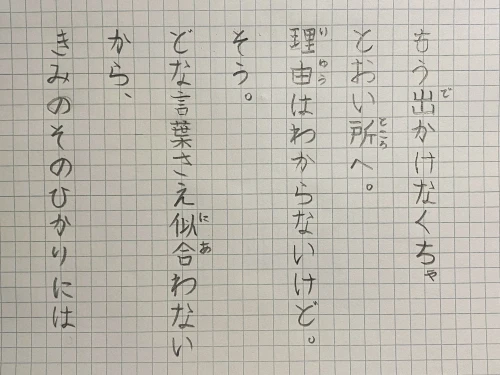 もう出かけなくちゃ
とおい所へ。
理由はわからないけど。
そう。
どな言葉さえ似合わない
から、
きみのそのひかりには